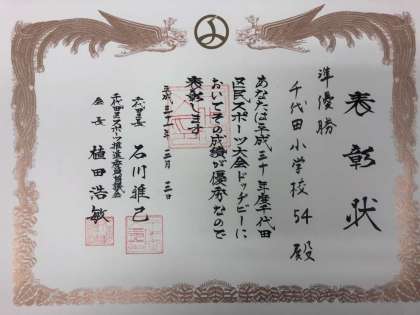 表彰状
準優勝
千代田小学校 54 殿
あなたは平成三十年度千代田
区民スポーツ大会ドッヂビーに
おいてその成績が優秀なので
表彰します
平成三十一年二月三日
千代田区長 石川雅己
千代田区スポーツ推進委員協議会
会長 植田浩敏